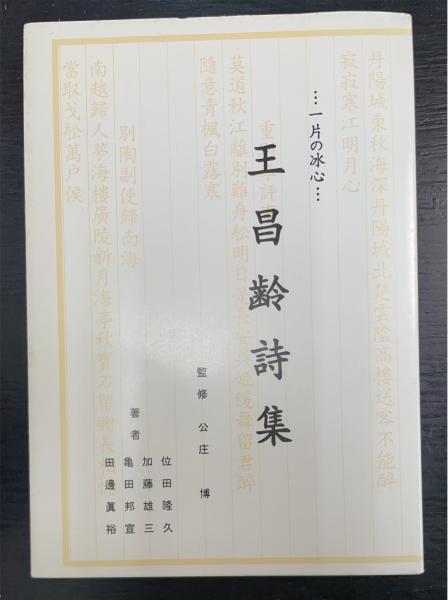 丹陽城東秋海深丹陽城北楚雲陰高樓送客不能醉
寂寂寒江明月心
…一片の冰心…
王昌齢詩集
重 評
莫道秋江離別難舟舩明日 長安 姬緩舞留君醉
隨意青楓白露寒
別陶副使歸南海
南越歸人夢海樓廣陵新月海亭秋寶刀留贈長
當取戈舩萬户侯
監修 公庄 博
著者
位田隆久
加藤雄三
亀田邦宣
田邊眞裕